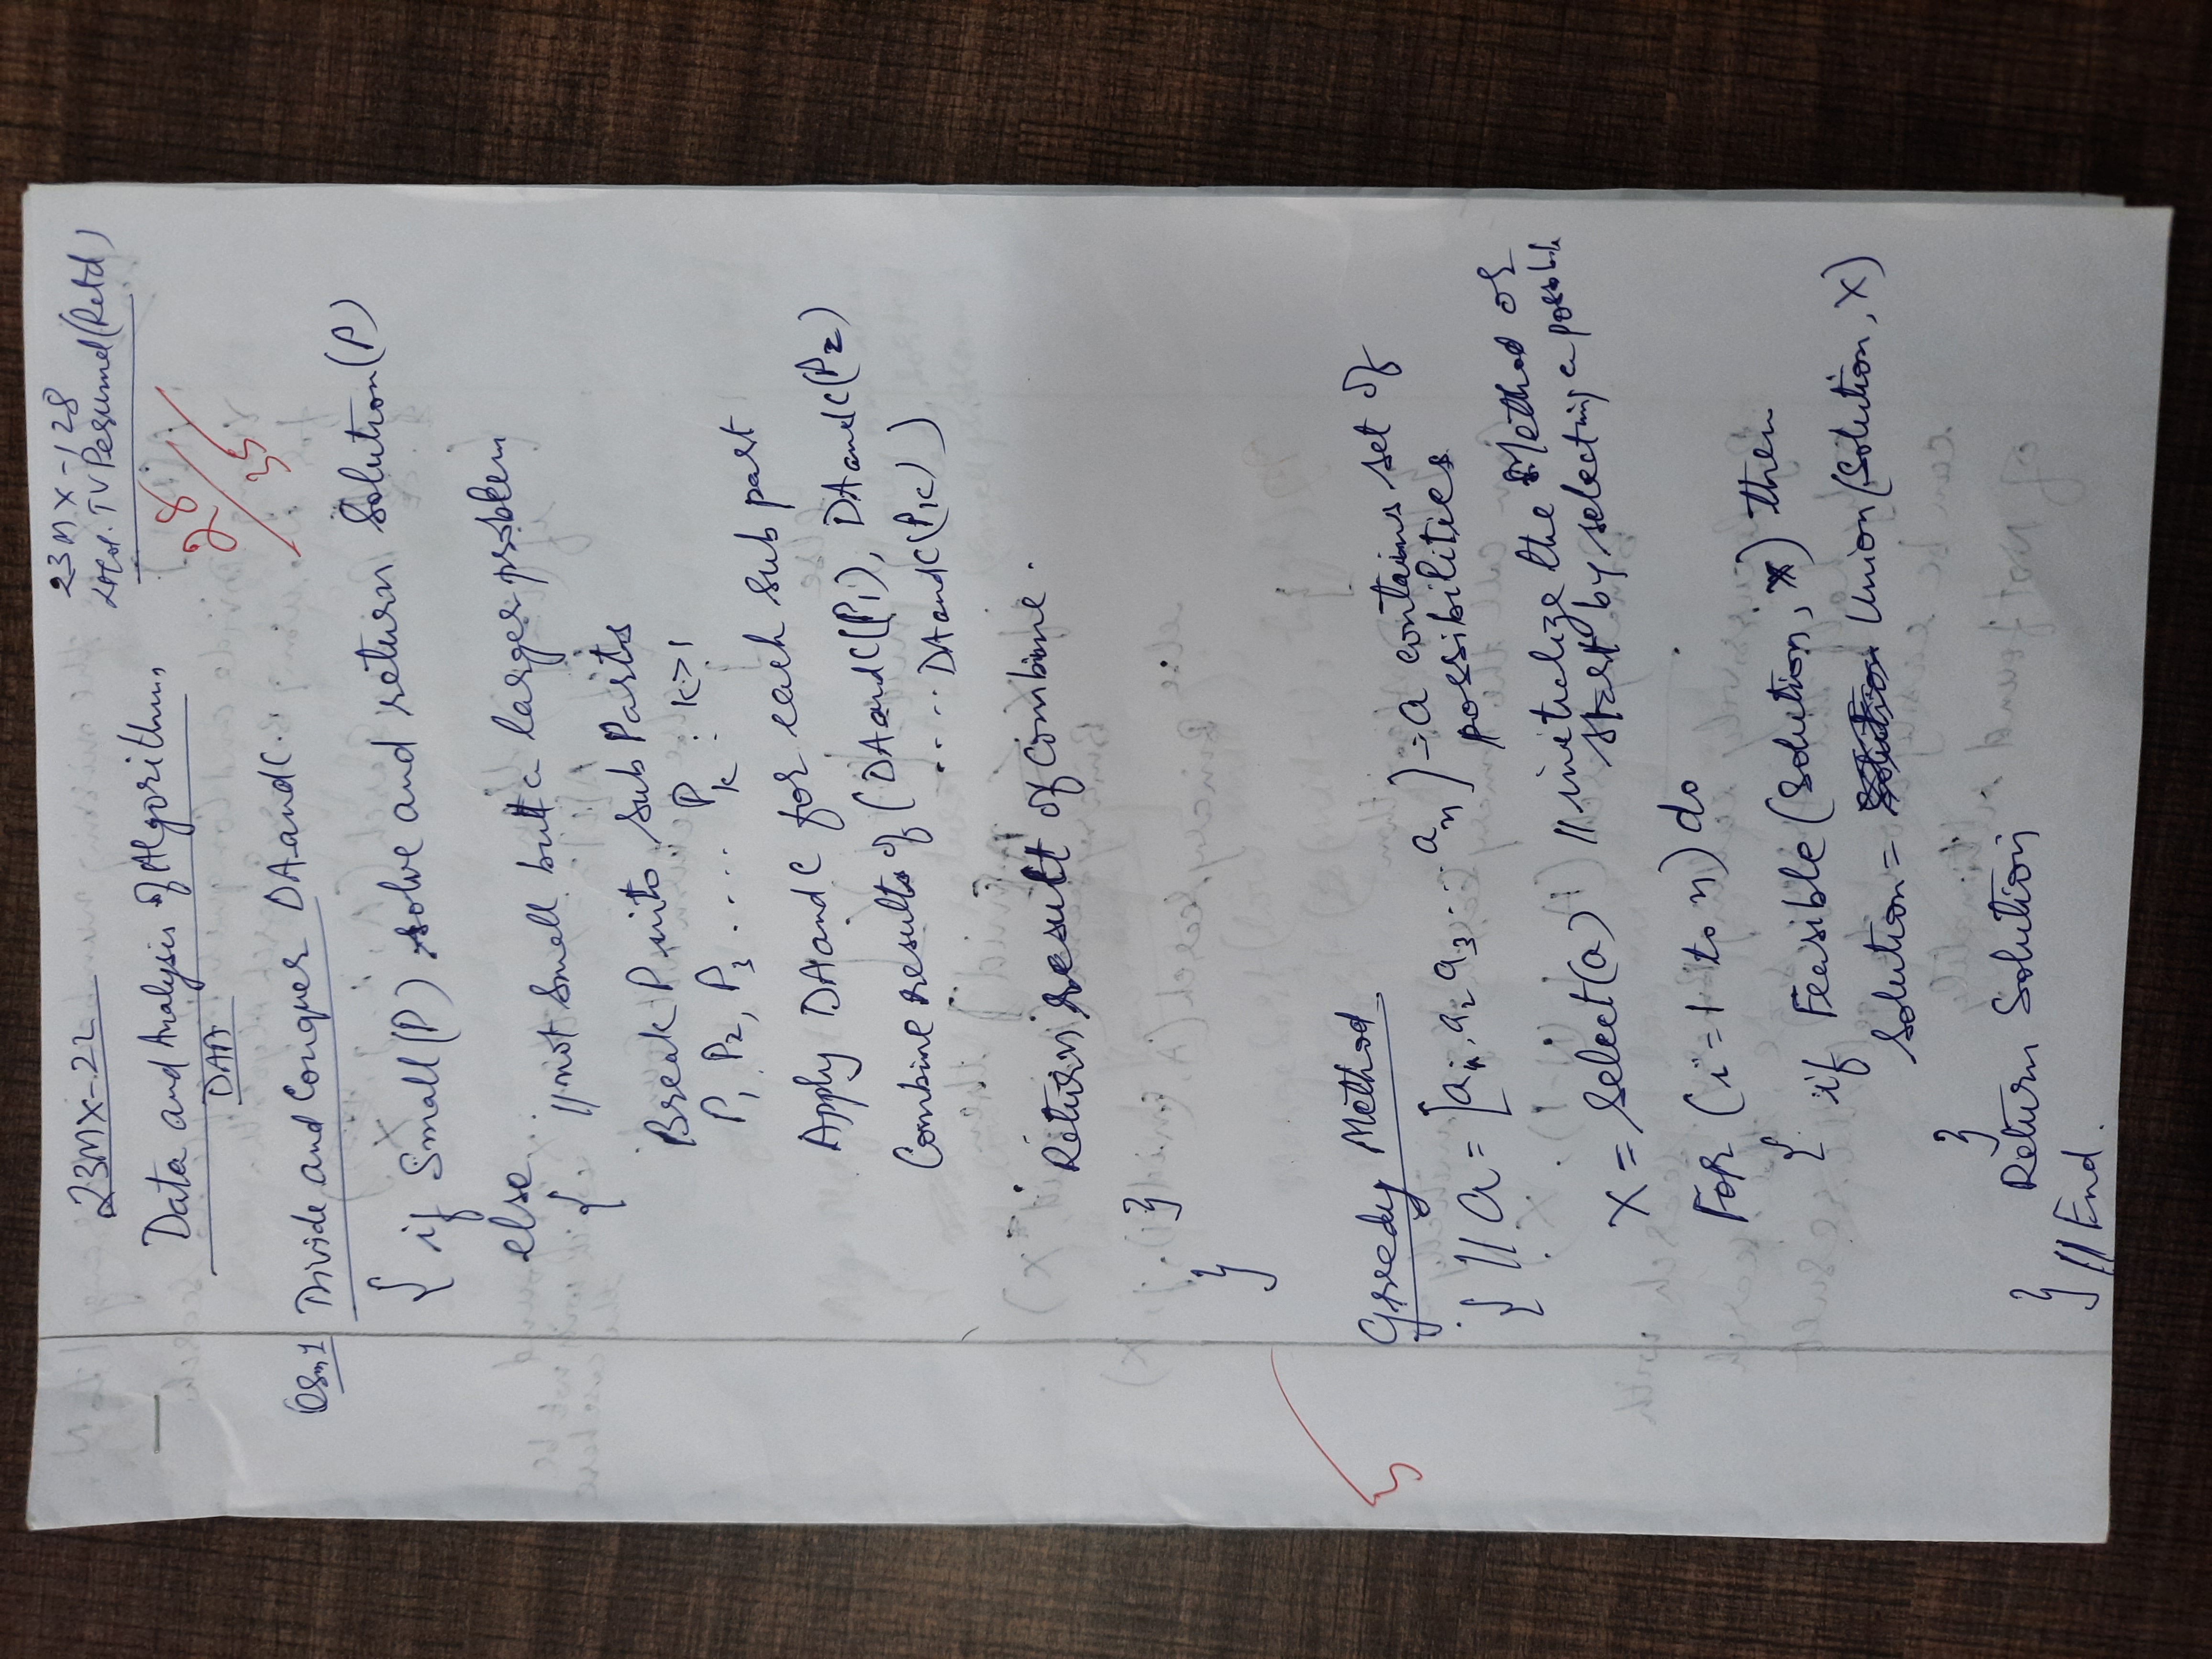 23MX-22
23MX-128
Lt Col. TV Perumal (Retd)
Data and Analysis of Algorithms
DAA
28/35
Qsn 1 Divide and Conquer DAandC.
{ if Small(P) solve and return Solution(P)
else
{ // not small but a larger problem
Break P into sub Parts
P1, P2, P3 .... Pk : k>1
Apply DAandC for each sub part
Combine results of (DAandC(P1), DAandC(P2)
.... DAandC(Pk))
Return result of Combine.
}
}
5
Greedy Method
{ // a = [a1, a2 a3 ... an] = a contains set of
possibilities
X = Select(a) // initialize the Method or
start by selecting a
For (i=1 to n) do
{ if Feasible (Solution, X) then
Solution = Union (Solution, X)
}
Return Solution
} // End.